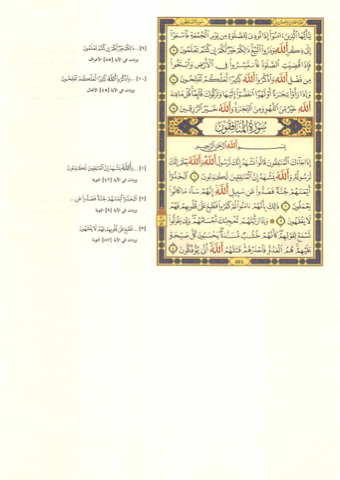 يَٰٓأَيُّهَا ٱلَّذِينَ ءَامَنُوٓا۟ إِذَا نُودِىَ لِلصَّلَوٰةِ مِن يَوْمِ ٱلْجُمُعَةِ فَٱسْعَوْا۟
إِلَىٰ ذِكْرِ ٱللَّهِ وَذَرُوا۟ ٱلْبَيْعَ ۚ ذَٰلِكُمْ خَيْرٌ لَّكُمْ إِن كُنتُمْ تَعْلَمُونَ ٩
فَإِذَا قُضِيَتِ ٱلصَّلَوٰةُ فَٱنتَشِرُوا۟ فِى ٱلْأَرْضِ وَٱبْتَغُوا۟
مِن فَضْلِ ٱللَّهِ وَٱذْكُرُوا۟ ٱللَّهَ كَثِيرًا لَّعَلَّكُمْ تُفْلِحُونَ ١٠
وَإِذَا رَأَوْا۟ تِجَٰرَةً أَوْ لَهْوًا ٱنفَضُّوٓا۟ إِلَيْهَا وَتَرَكُوكَ قَآئِمًا ۚ قُلْ مَا عِندَ
ٱللَّهِ خَيْرٌ مِّنَ ٱللَّهْوِ وَمِنَ ٱلتِّجَٰرَةِ ۚ وَٱللَّهُ خَيْرُ ٱلرَّٰزِقِينَ ١١
سُورَةُ المُنَافِقُونَ
بِسْمِ ٱللَّهِ ٱلرَّحْمَٰنِ ٱلرَّحِيمِ
إِذَا جَآءَكَ ٱلْمُنَٰفِقُونَ قَالُوا۟ نَشْهَدُ إِنَّكَ لَرَسُولُ ٱللَّهِ ۗ وَٱللَّهُ يَعْلَمُ إِنَّكَ
لَرَسُولُهُۥ وَٱللَّهُ يَشْهَدُ إِنَّ ٱلْمُنَٰفِقِينَ لَكَٰذِبُونَ ١ ٱتَّخَذُوٓا۟
أَيْمَٰنَهُمْ جُنَّةً فَصَدُّوا۟ عَن سَبِيلِ ٱللَّهِ ۚ إِنَّهُمْ سَآءَ مَا كَانُوا۟
يَعْمَلُونَ ٢ ذَٰلِكَ بِأَنَّهُمْ ءَامَنُوا۟ ثُمَّ كَفَرُوا۟ فَطُبِعَ عَلَىٰ قُلُوبِهِمْ فَهُمْ
لَا يَفْقَهُونَ ٣ ۞ وَإِذَا رَأَيْتَهُمْ تُعْجِبُكَ أَجْسَامُهُمْ ۖ وَإِن يَقُولُوا۟
تَسْمَعْ لِقَوْلِهِمْ ۖ كَأَنَّهُمْ خُشُبٌ مُّسَنَّدَةٌ ۖ يَحْسَبُونَ كُلَّ صَيْحَةٍ
عَلَيْهِمْ ۚ هُمُ ٱلْعَدُوُّ فَٱحْذَرْهُمْ ۚ قَٰتَلَهُمُ ٱللَّهُ ۖ أَنَّىٰ يُؤْفَكُونَ ٤
[٩] ...ذَٰلِكُمْ خَيْرٌ لَّكُمْ إِن كُنتُمْ تَعْلَمُونَ
[١٠] ...وَٱذْكُرُوا۟ ٱللَّهَ كَثِيرًا لَّعَلَّكُمْ تُفْلِحُونَ
وردت في الآية [٤٥] الأنفال
[١] ...وَٱللَّهُ يَشْهَدُ إِنَّ ٱلْمُنَٰفِقِينَ لَكَٰذِبُونَ
[٢] ٱتَّخَذُوٓا۟ أَيْمَٰنَهُمْ جُنَّةً فَصَدُّوا۟ عَن ...
وردت في الآية [٩] التوبة
[٣] ...فَطُبِعَ عَلَىٰ قُلُوبِهِمْ فَهُمْ لَا يَفْقَهُونَ
وردت في الآية [٨٧] التوبة